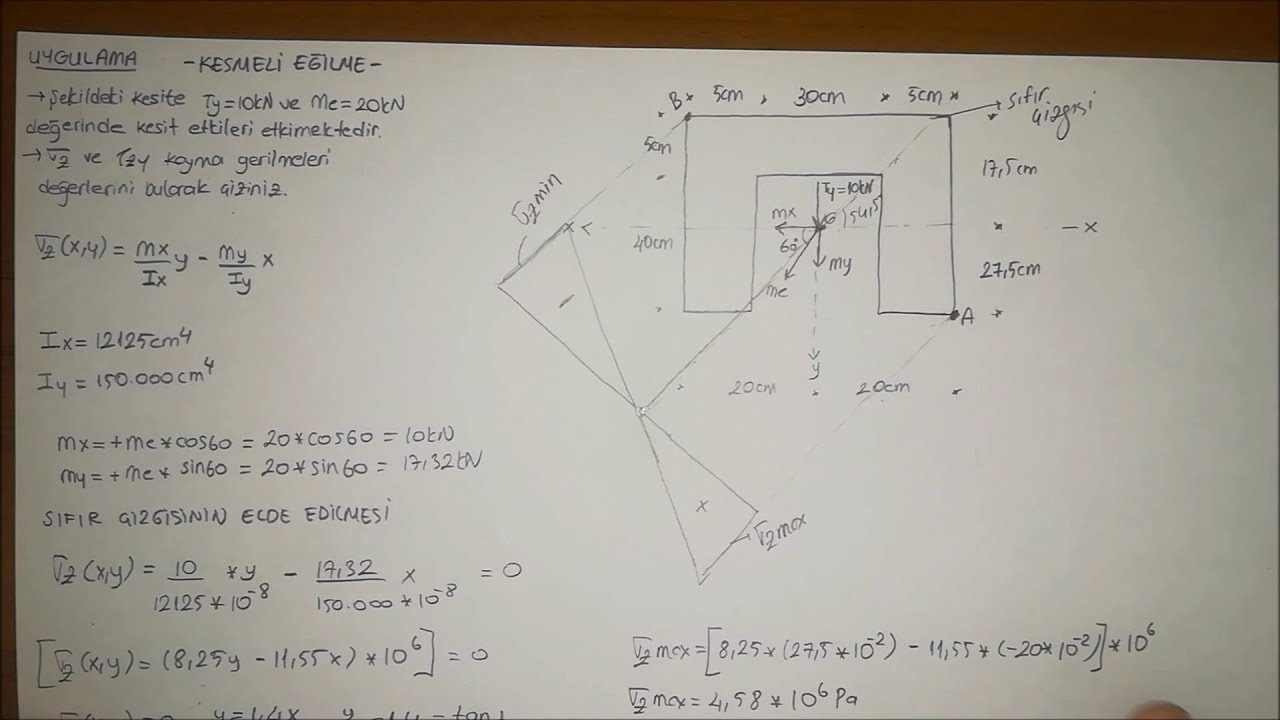 UYGULAMA -KESMELİ EĞİLME-
→ Şekildeki kesite Ty=10kN ve Me=20kN
değerinde kesit etkileri etkimektedir.
→ σz ve τzy kayma gerilmeleri
değerlerini bularak çiziniz.
σz(x,y) = mx/Ix y - my/Iy x
Ix = 12125cm⁴
Iy = 150.000cm⁴
mx=+me*cos60 = 20*cos60 = 10kN
my=+me* sin60 = 20*sin60 = 17,32kN
SIFIR ÇİZGİSİNİN ELDE EDİLMESİ
σz(x,y) = 10/12125*10⁻⁸ *y - 17,32/150.000*10⁻⁸ x = 0
[σz(x,y) = (8,25y - 11,55x)*10⁶] = 0
y=1,4x
B
5cm
30cm
5cm
sıfır
çizgisi
5cm
17,5cm
σz min
Ty=10kN
mx
G
40cm
60°
my
- x
27,5cm
me
A
y
20cm
20cm
x
σz max
σz max = [8,25*(27,5*10⁻²) - 11,55*(-20*10⁻²)]*10⁶
σz max = 4,58*10⁶ Pa